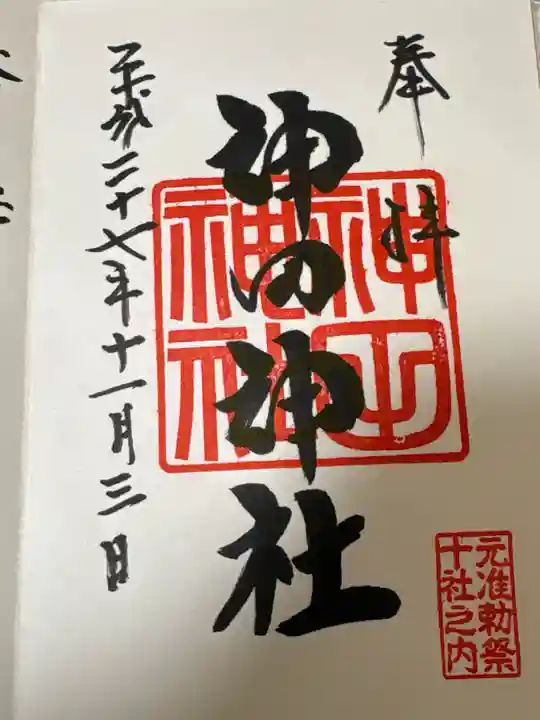 奉拝
神田神社
平成二十七年十一月三日
元准勅祭
十社之内